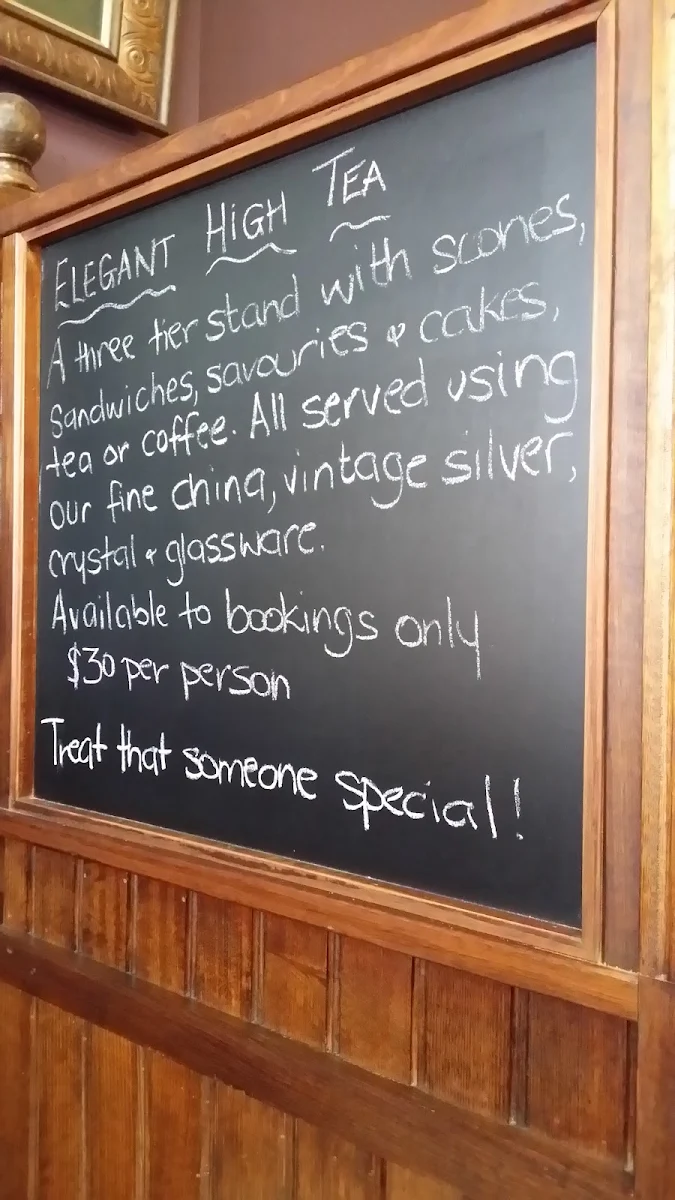 ELEGANT HIGH TEA
A three tier stand with scones,
Sandwiches, savouries & cakes,
tea or coffee. All served using
our fine china, vintage silver,
crystal & glassware.
Available to bookings only
$30 per person
Treat that someone special!